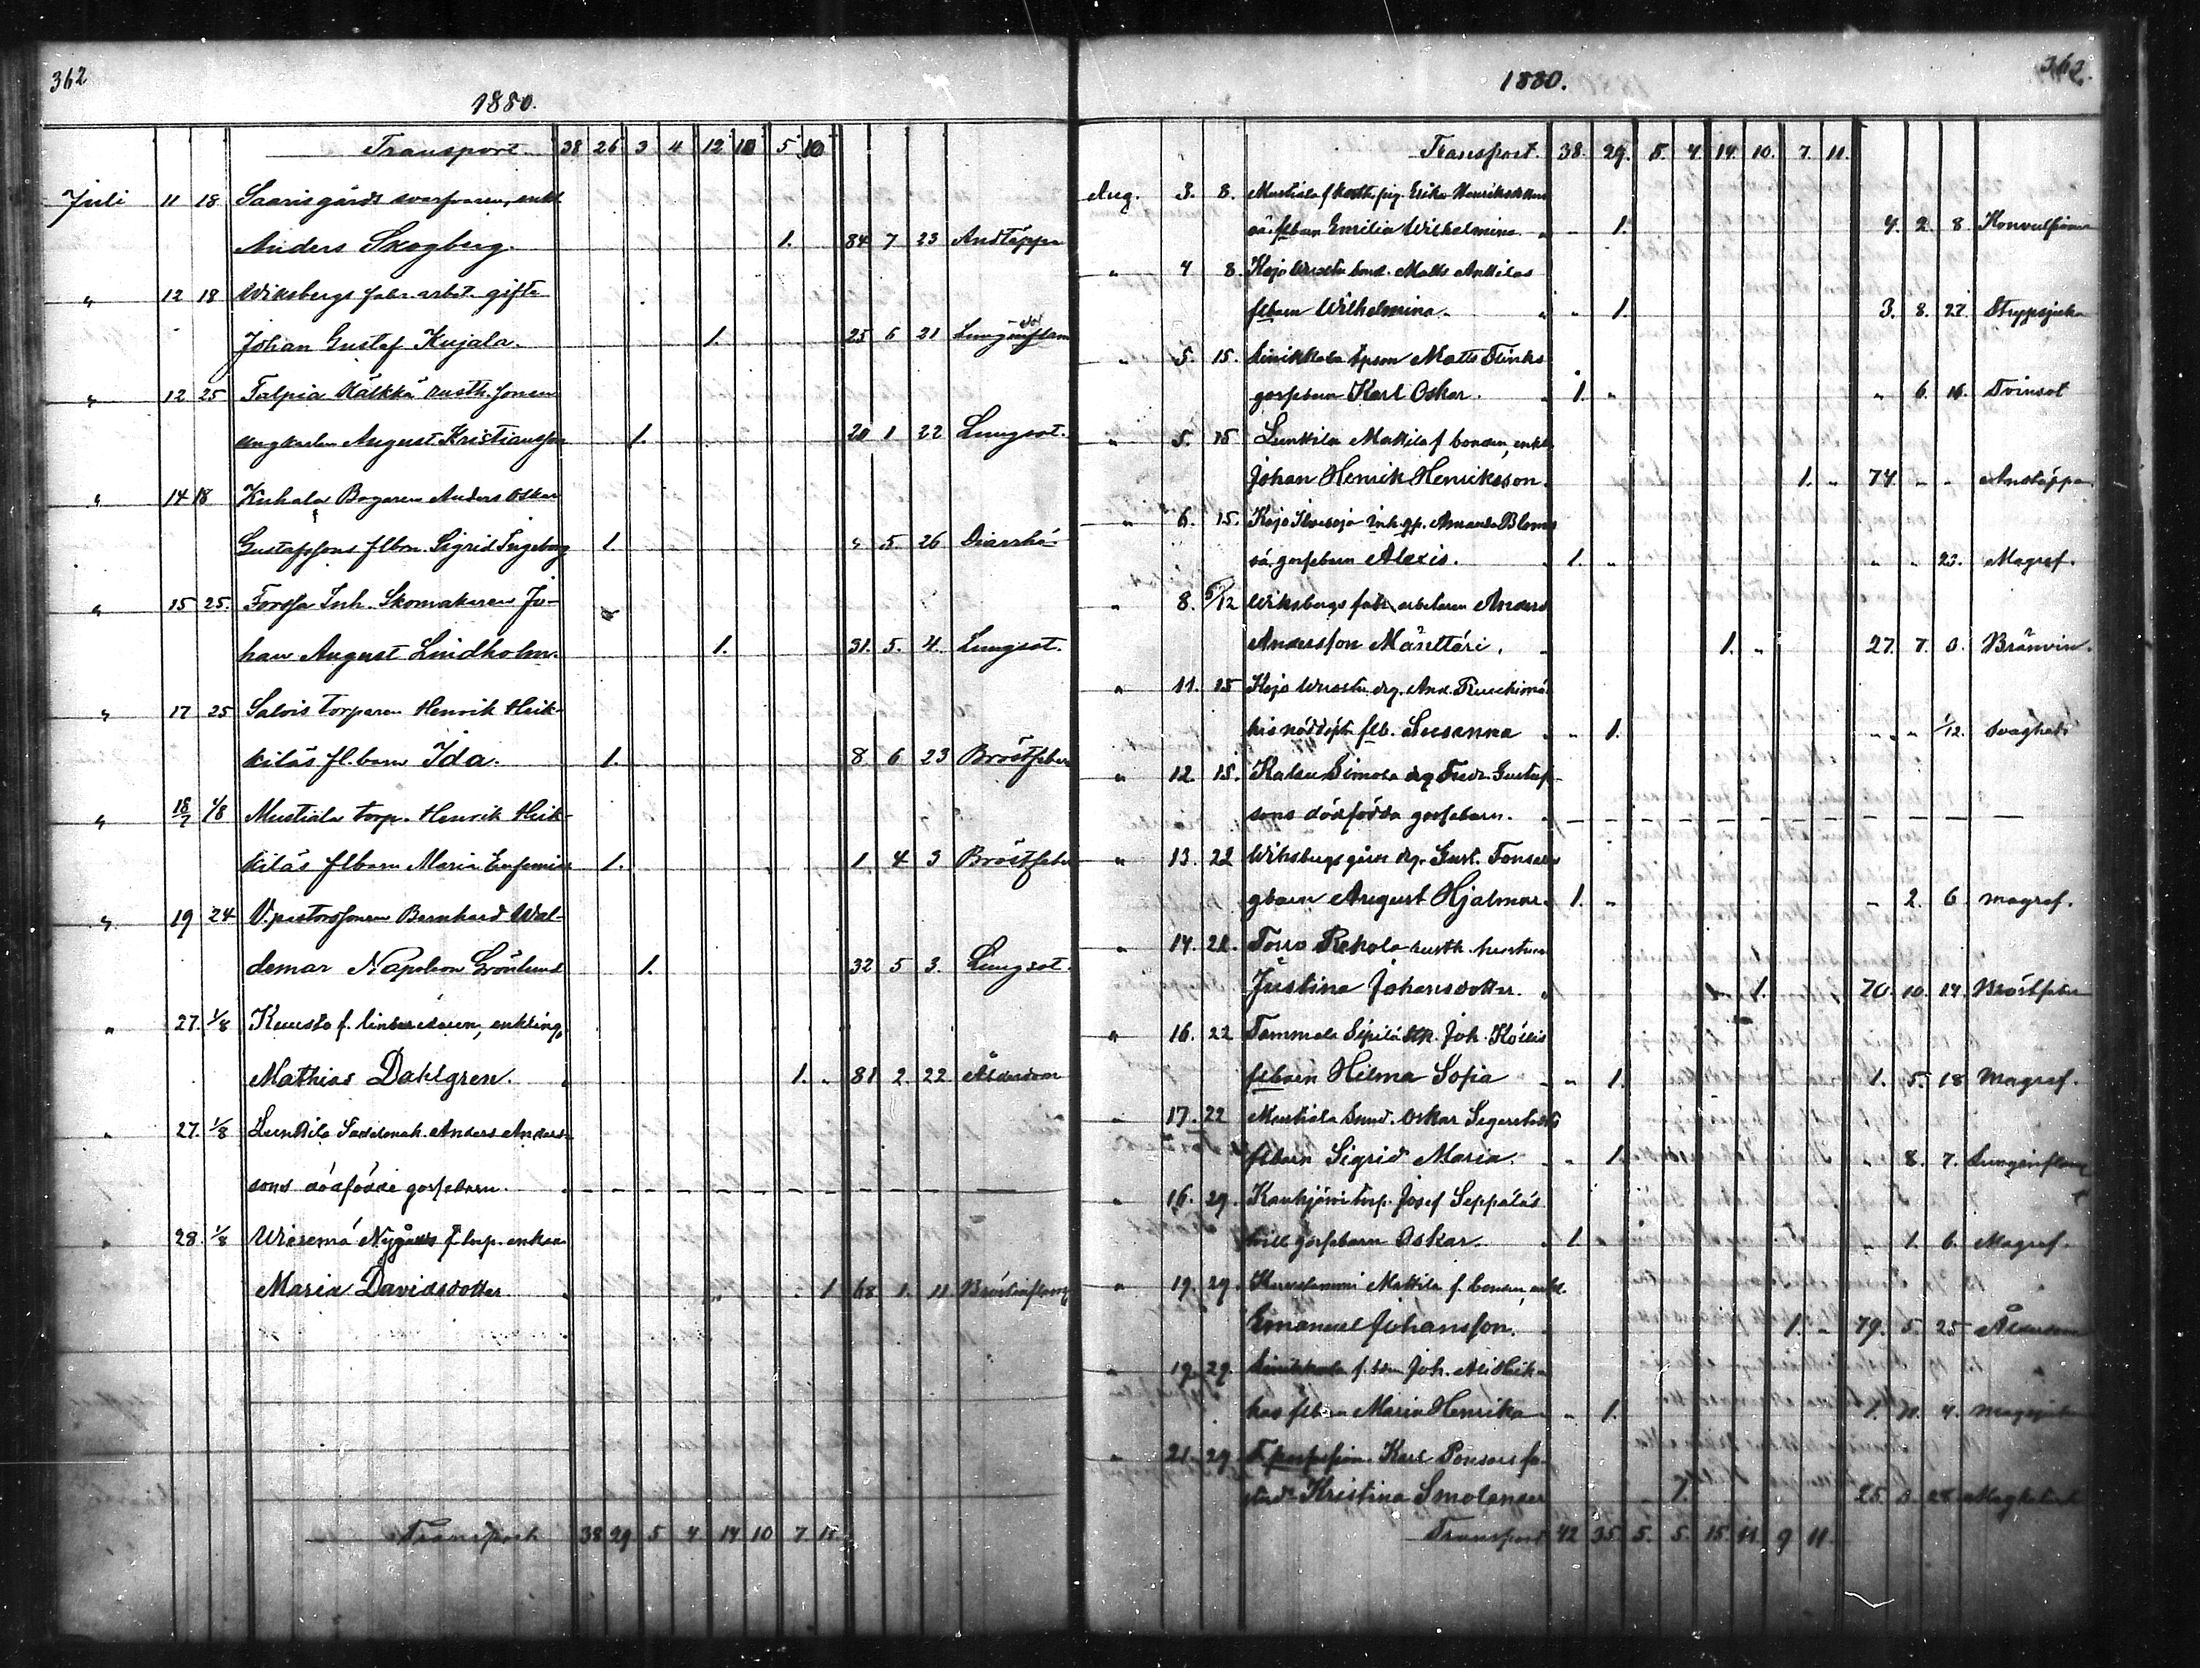 362
1880.
Transport 38 26 3 4 12 10 5 10
Juli 11 18 Saarisgårds svarfvaren, enkl
Anders Skogberg. 1. 84 7 23 Andtäppa
" 12 18 Wiksbergs fabr. arbet. gifte
Johan Gustaf Kujala. 1. 25 6 21
" 12 25 Talpia Kälkkä rusth. sonen
ungkarlen August Kristiansson 1. 20 1 22 Lungsot.
" 14 18 Kuhala Bagaren Anders Oskar
Gustafssons flbrn. Sigrid Ingeborg 1. " 5 26 Diarrhé
" 15 25. Forssa Inh. Skomakaren Jo-
han August Lindholm. 1. 31. 5. 4. Lungsot.
" 17 25 Salois torparen Henrik Heik-
kiläs fl.barn Ida. 1. 8 6 23 Bröstfeber
" 18/7 1/8 Mustiala torp. Henrik Heik-
kiläs flbarn Maria Eufemia 1. 1. 4 3 Bröstfeber
" 19 24 V.pastorssonen Bernhard Wal-
demar Napoleon Grönlund 1. 32 5 3. Lungsot.
" 27. 1/8 Kuusto f. enkling,
Mathias Dahlgren. 1. " 81 2 22 Ålderdom
" 27. 1/8 Lunkila Sadelmak. Anders Anders-
sons dödfödde gossebarn. — — — —
" 28 1/8 Wieremä Nygårds f. torp. enkan
Maria Davidsdotter 1 68 1. 11 Bröstinflam
Transport 38 29 5 4 14 10 7 11
1880.
362.
Transport. 38. 29. 5. 4. 14. 10. 7. 11.
Aug. 3. 8. Mustiala f. pig. Erika Henriksdotters
oä. flbarn Emilia Wilhelmina " 1. 4. 2. 8. Konvulsioner
" 4 8. Kojo bond. Matts Anttilas
flbarn Wilhelmina. " " 1. 3. 8. 27. Strypsjuka
" 5. 15. Linikkala Matts Flinks
gossebarn Karl Oskar. 1. " " 6. 16. Tvinsot
" 5. 15 Lunkila Mattila f. bonden, enkl.
Johan Henrik Henriksson. 1. " 74 " " Andtäppa
" 6. 15. Kojo inh. qp. Amanda Bloms
oä. gossebarn Alexis. 1. " " " 23. Magref.
" 8. Wiksbergs fabr. arbetaren Anders
Andersson Mänttäri. 1. " 27. 7. 0. Brännvin.
" 11. 15 Kojo drg. And.
flb. Susanna " 1. " " 1/12. Svaghet
" 12. 15. Kalsu Simola drg Fredr. Gustaf-
sons dödfödda gossebarn. — — — —
" 13. 22 Wiksbergs gårds drg. Gust.
gbarn August Hjalmar. 1. " " 2. 6 magref.
" 14. 22. Torro Rekola rusth. hustrun
Justina Johansdotter. 1. 70. 10. 14. Bröstfeber
" 16. 22 Tammela Sipilä Joh. Köllis
flbarn Hilma Sofia " 1. 1. 5. 18 Magref.
" 17. 22 Mustiala Smed. Oskar Segerstedts
flbarn Sigrid Maria. " 1. " 8. 7. Lunginflam
" 16. 29. Kaukjärvi torp. Josef Seppäläs
tvill. gossebarn Oskar. 1 " " 1. 6. Magref.
" 19. 29. Mattila f. bonden, enkl.
Emanuel Johansson. 1. " 79. 5. 25 Ålderdom
" 19. 29. Linikkala f. Joh.
flbarn Maria Henrika " 1. 4.
" 21. 29 Karl
Kristina Smolander 25. 0. 28.
Transport 42 35. 5. 5. 15. 11. 9 11.